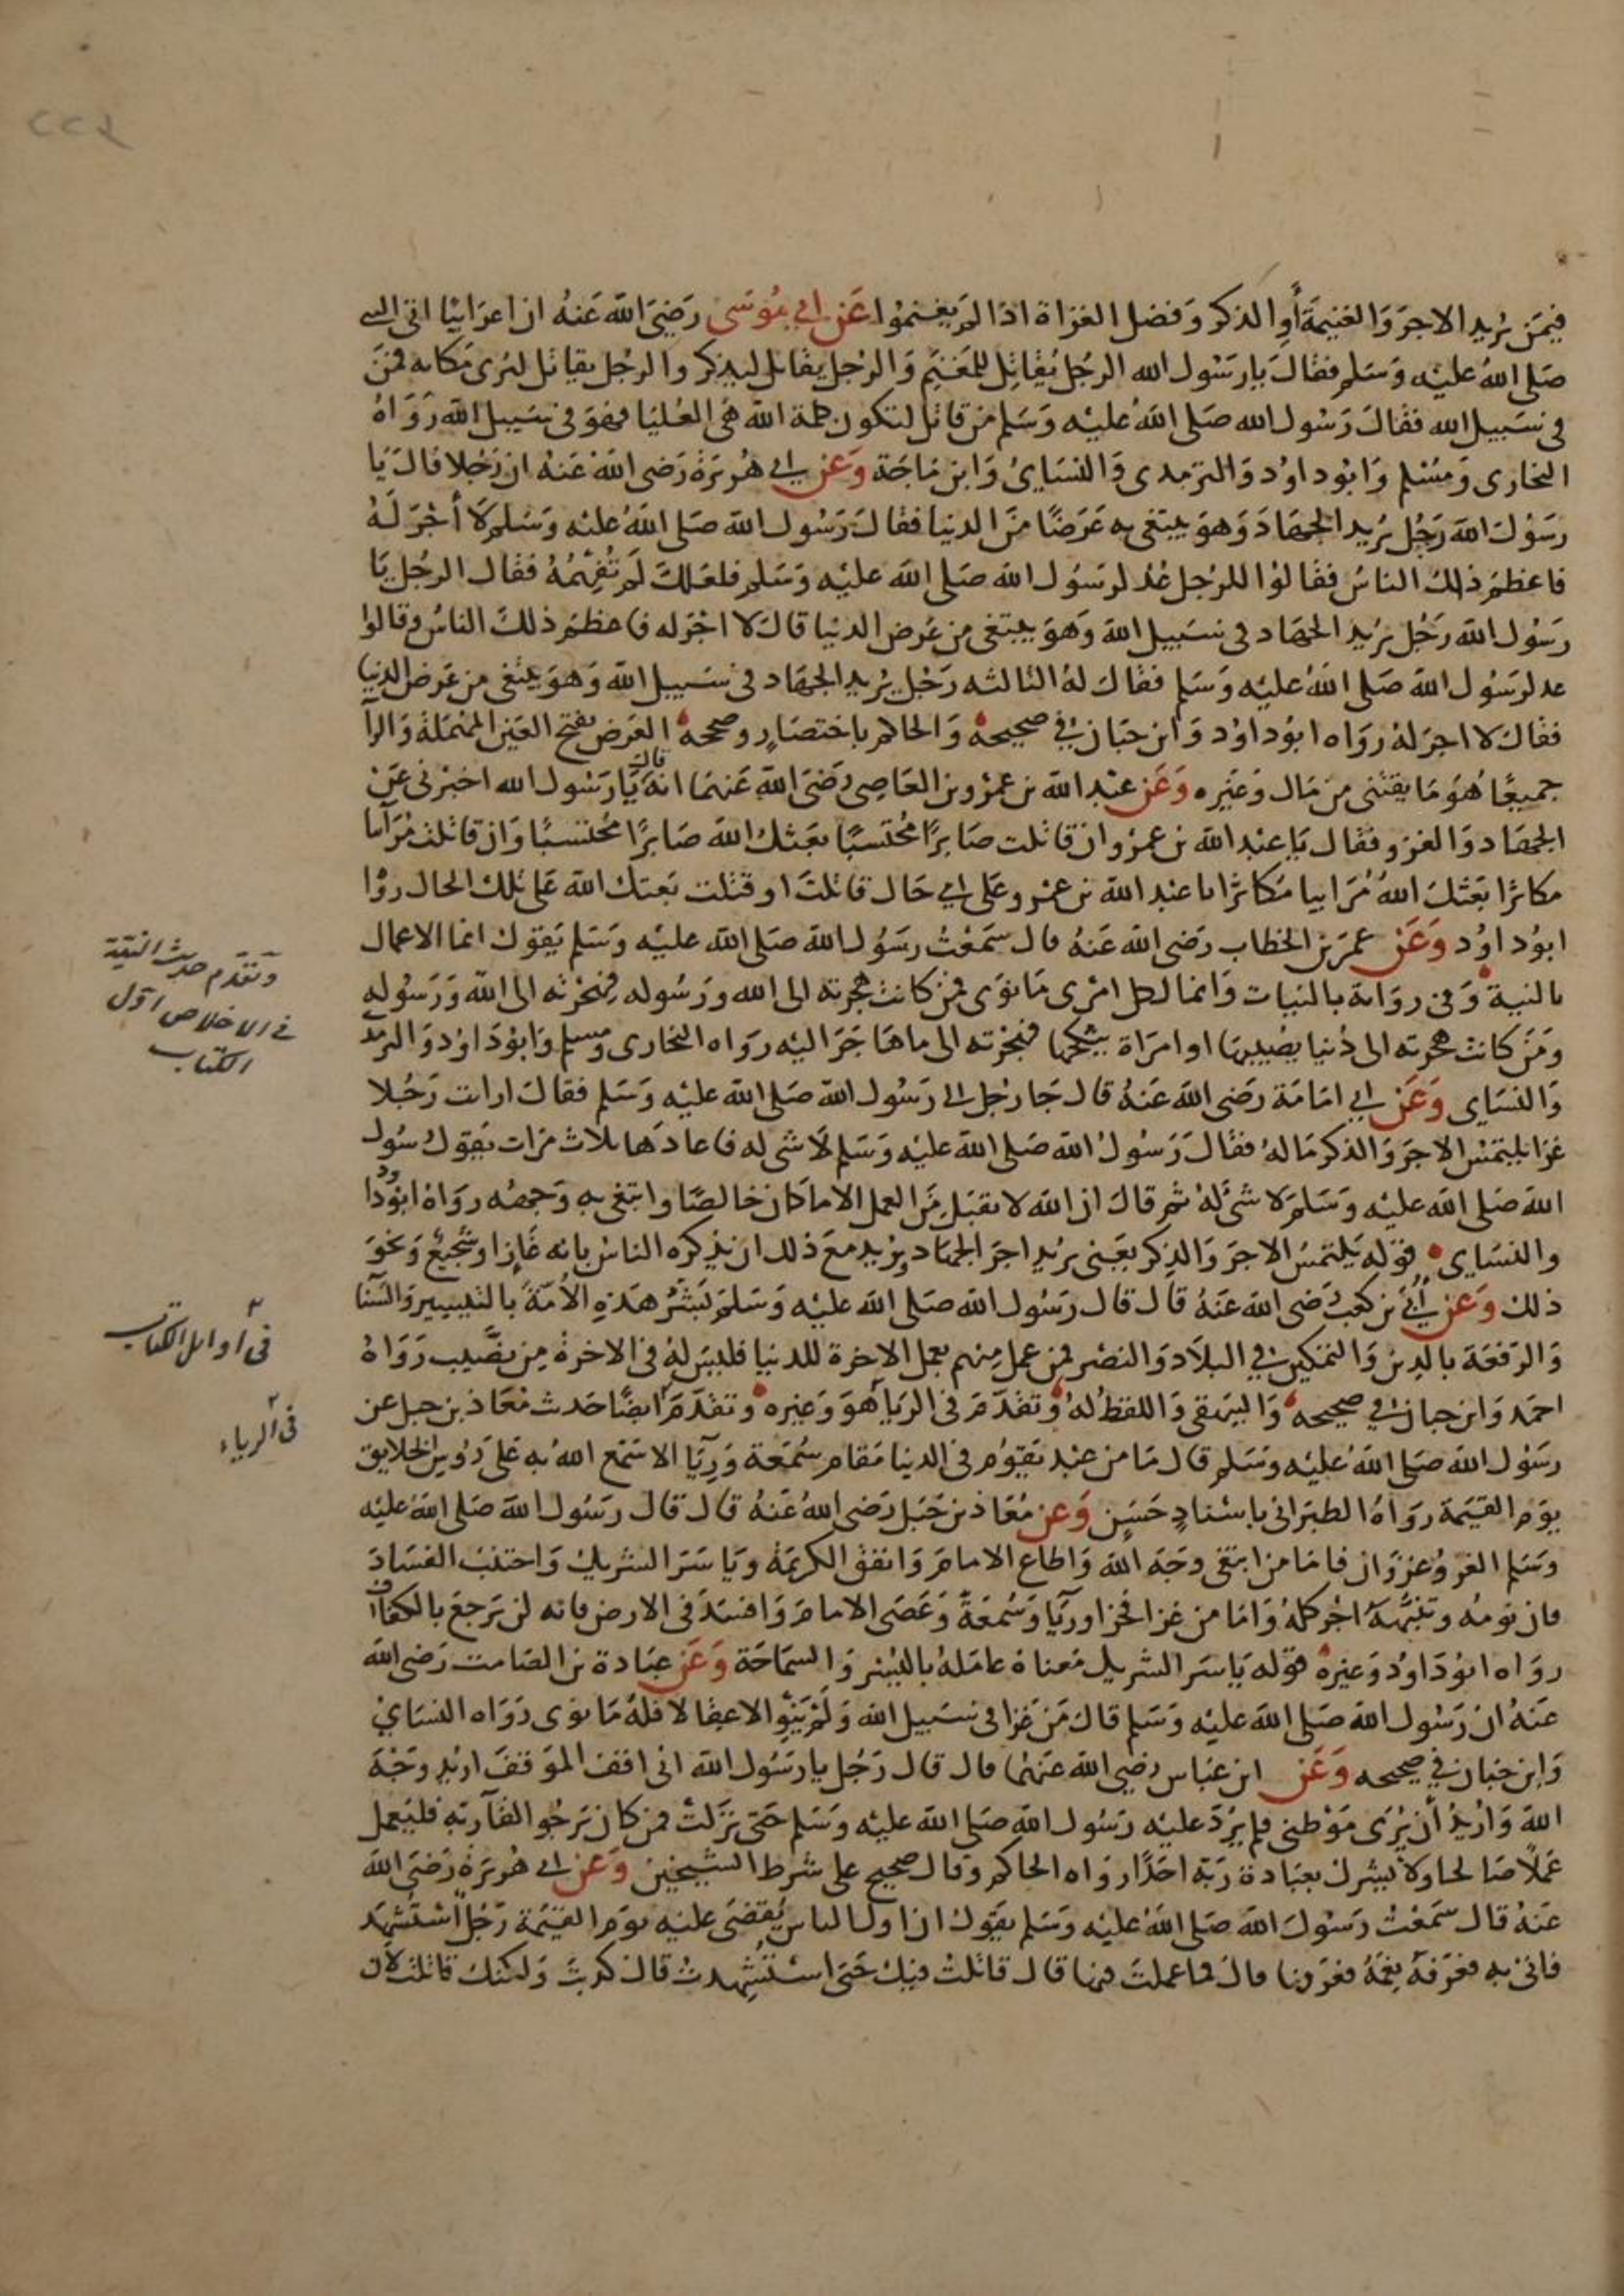 ٢٢٤
فيمَن يُريد الاجرَ وَالغنيمَةَ أَوِ الذكر وَفضل الغزاة اذا لم يَغنموُا عَن ابي مُوسَى رَضِيَ الله عَنهُ ان اعرَابيًا اتى النبى
صَلى اللهُ عليْه وَسَلم فقالَ يَا رَسُول الله الرجُل يُقاتِل للمَغنَم وَالرجُل يقاتل ليذكر والرجُل يقاتل لنرى مَكانه فمن
فى سَبيل الله فقالَ رَسُول الله صَلى اللهُ عليْه وَسَلم من قاتل لتكون كلمة الله هىَ العُليَا فهوَ فى سَبيل الله رَوَاهُ
البخارى وَمسْلم وَابُوداوُد وَالترمدى وَالنسَائ وَابن مَاجَة وَعن ابى هُرَيرَة رَضى اللهُ عَنهُ ان رَجُلا قالَ يَا
رسُولَ الله رَجُل يُريد الجهَادَ وَهوَ يبتغى به عَرَضًا منَ الدنيا فقالَ رَسُول الله صَلى اللهُ عليْه وَسَلم لا أجْرَ لَهُ
فاعظمَ ذلك الناسُ فقالوُا للرجل عُد لرسُول الله صَلى الله عليْه وَسَلم فلعَلكَ لَم تُفهِمْهُ فقال الرجُل يَا
رسُول الله رَجُل يُريد الجهَاد فى سَبيل الله وَهوَ يبتغى من عَرض الدنيا قالَ لا اجْرَ له فاعظم ذلكَ الناسُ وقالوا
عد لرسُول الله صَلى اللهُ عليْه وَسَلم فقالَ لهُ الثالثه رَجُل يُريد الجهَاد فى سَبيل الله وَهوَ يبتغى من عَرض الدنيا
فقالَ لا اجرَ لهُ رواه ابُوداوُد وَابن حبَان فى صحيحهُ وَالحاكم باختصَارٍ وصححهُ العَرض بفتح العَين المهمَلة وَالرآ
جميعًا هُوَ مَا يقتنى من مَال وَغيَره وَعَن عبْد الله بن عمْرو بن العَاصِى رَضىَ الله عَنهمَا انهُ قال يَا رَسُول الله اخبرنى عَن
الجهَاد وَالغزو فقال يَا عبْد الله بن عمرو ان قاتلت صَابرًا مُحتسبًا بَعَثكَ الله صَابرًا مُحتسبًا وَان قاتلت مُرَآىيا
مكاثرًا بَعَثكَ اللهُ مُرَاىيا مَكاثرًا يا عبْد الله بن عمْرو عَلى اىِ حَال قاتلتَ او قتلت بَعثكَ الله عَلى تلك الحال روَا
ابوُداوُد وَعَن عمَر بن الخطاب رَضى الله عَنهُ قال سَمعْتُ رسَول الله صَلى الله عليْه وَسَلم يَقول انما الاعمال
بالنية وَفى روَاية بالنيات وَانما لكل امْرى مَا نوَى فمن كانت هجرته الى الله ورَسُوله فهجْرته الى الله وَرَسُوله
ومَن كانت هجرته الى دُنيا يصُيبها او امرَاة ينكحها فهجْرته الى ما هَاجَرَ اليْه رواه البخارى ومسلم وَابوُداوُد وَالترمذ
وَالنسَاى وَعَن ابى امَامَة رَضى الله عَنهُ قال جَا رجُل الى رَسُول الله صَلى الله عليْه وَسَلم فقالَ ارايت رَجُلا
غزا يلتمسُ الاجرَ وَالذكر مَا لهُ فقالَ رَسُولُ الله صَلى الله عليْه وَسَلم لَا شى له فاعادَها ثلاث مَرات يَقول رسُول
الله صَلى الله عليْه وَسَلم لا شئَ لهُ ثم قالَ ان الله لا يقبَل منَ العمل الا ما كان خالصًا وابتغى به وَجهُه رواهُ ابوُداود
والنسَاى قوله يَلتمسُ الاجرَ وَالذكر يَعنى يريد اجرَ الجهاد ويريد معَ ذلك ان يذكره الناسُ بانه غازٍ او شجيعٌ وَنحوَ
ذلك وَعَن أُبَىّ بن كعبٍ رَضى الله عَنهُ قال قال رَسُول الله صَلى الله عليْه وَسَلم بَشِّر هَذهِ الأُمَّةَ بالتيسِير وَالسَّنا
وَالرفعَة بالدين وَالتمكين فى البلَاد وَالنصْر فمن عمل منهم بعمل الاخرة للدنيا فليسَ لهُ فى الاخرة مِن نصِّيب رَوَاهُ
احمَد وَابن حبان فى صحيحهُ وَالبيهقى وَاللفظ لهُ وتقدّمَ فى الريَا هوَ وَغيره وتقدّمَ ايضًا حَديث مُعَاذ بن جبل عن
رسُول الله صَلى اللهُ عليْه وسَلم قال مَا من عبْد يقوُم فى الدنيا مَقام سُمعَة وَرِيَآ الا سَمّع اللهُ به عَلى رؤُوس الخلايق
يوَم القيَمة رواهُ الطبَرانى باسْنادٍ حَسَنٍ وَعن مُعَاذ بن جَبَل رَضى اللهُ عَنهُ قال قال رسُول الله صَلى الله عليْه
وسَلم الغزوُ غزوَان فامَا من ابتغى وجَه الله وَاطاع الامامَ وَانفق الكريمَة ويَاسَرَ الشريك وَاجتنبَ الفسَادَ
فان نومهُ وتنبهَهُ اجْر كلهُ وَامَا من غزا فخرا وريَآ وَسُمعَةً وَعَصَى الامامَ وَافسَدَ فى الارض فانه لن يَرجعَ بالكفاف
رواه ابوُداوُد وَغيرهُ قوله يَاسَر الشريك مَعناهُ عامَلهُ باليُسْر وَالسمَاحَة وَعَن عبَادة بن الصَامت رَضى الله
عَنهُ ان رَسُول الله صَلى الله عليْه وَسَلم قالَ مَن غزا فى سَبيل الله وَلمْ يَنوِ الا عقالا فلهُ مَا نوى رَوَاه النسَاىُ
وَابن حبان فى صحيحه وَعَن ابن عبَاس رضى الله عَنهمَا قال قال رَجُل يا رسُول الله انى اقف الموقفَ اريد وجْهَ
اللهَ وَارُيدُ أن يُرَى مَوْطنى فلم يَرُدّ عليْه رَسُول الله صَلى الله عليْه وَسَلم حَتى نزَلتْ فمن كان يَرجُو لقَآء ربه فليَعمل
عَملًا صَالحا ولا يشرك بعبَادة رَبّه احَدًا رواه الحاكم وقال صحيح على شرط الشيخين وَعن ابى هُريَرة رَضى الله
عَنهُ قال سَمعْتُ رَسُولَ الله صَلى اللهُ عليْه وَسَلم يقول ان اول الناس يُقضَى عليْه يوم القيَمة رَجُلٌ اسْتُشهِدَ
فاتى به فعَرّفهُ نعَمهُ فعَرفها قال فما عملتَ فيها قال قاتلتُ فيكَ حَتى استُشْهِدتُ قال كذبتَ وَلكنكَ قاتلتَ لأن
وتقدّم حديث النية
فى الاخلاص اوّل
الكتاب
فى أوايل الكتاب
فى الرياء